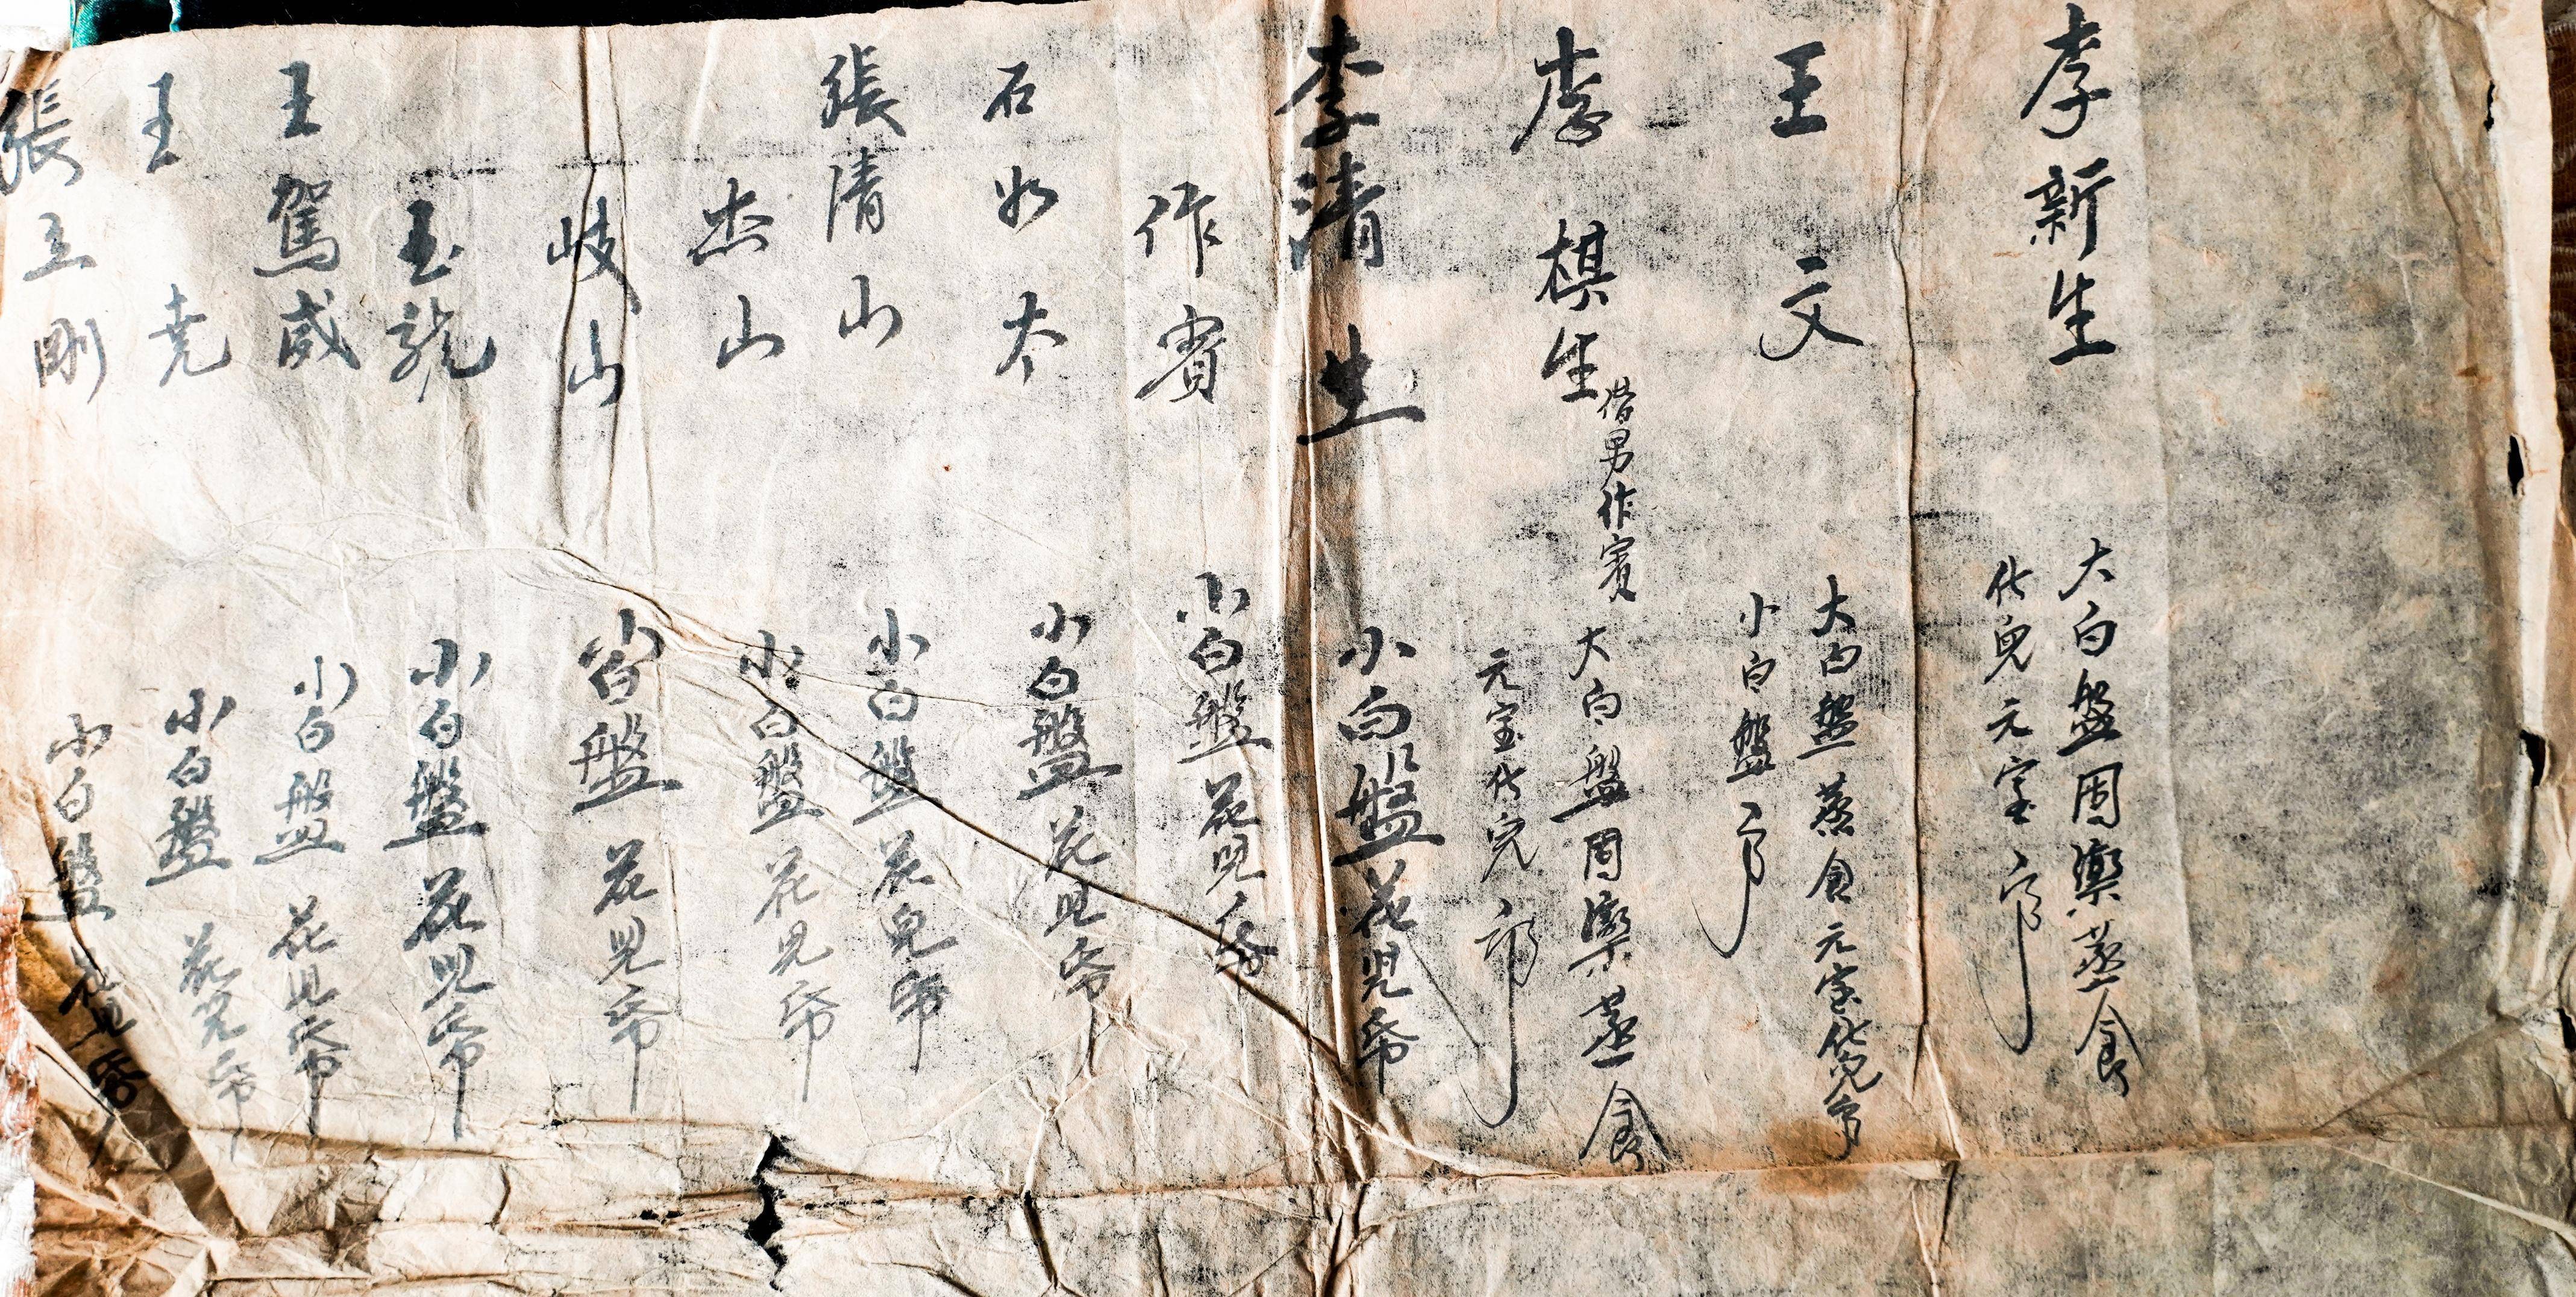 李新生
大白盤周樂蒸食
化兒元宝
王文
大白盤蒸食元宝化兒
小白盤
李棋生
偕男作賓
大白盤周樂蒸食
元宝化兒
李清生
小白盤花兒帋
作賓
小白盤花兒帋
石如太
小白盤花兒帋
張清山
小白盤花兒帋
杰山
小白盤花兒帋
岐山
小白盤花兒帋
玉龍
小白盤花兒帋
王駕威
小白盤花兒帋
王堯
小白盤花兒帋
張立剛
小白盤花兒帋